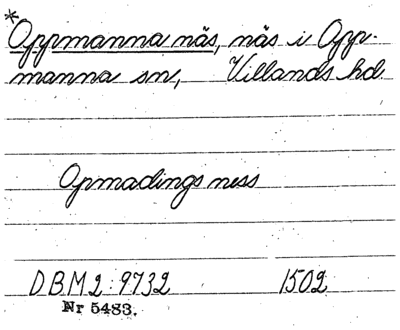 *
Oppmanna näs, näs i Opp-
manna sn, Villands hd.
Opmadings ness
DBM2:9732 1502
Nr 5483.